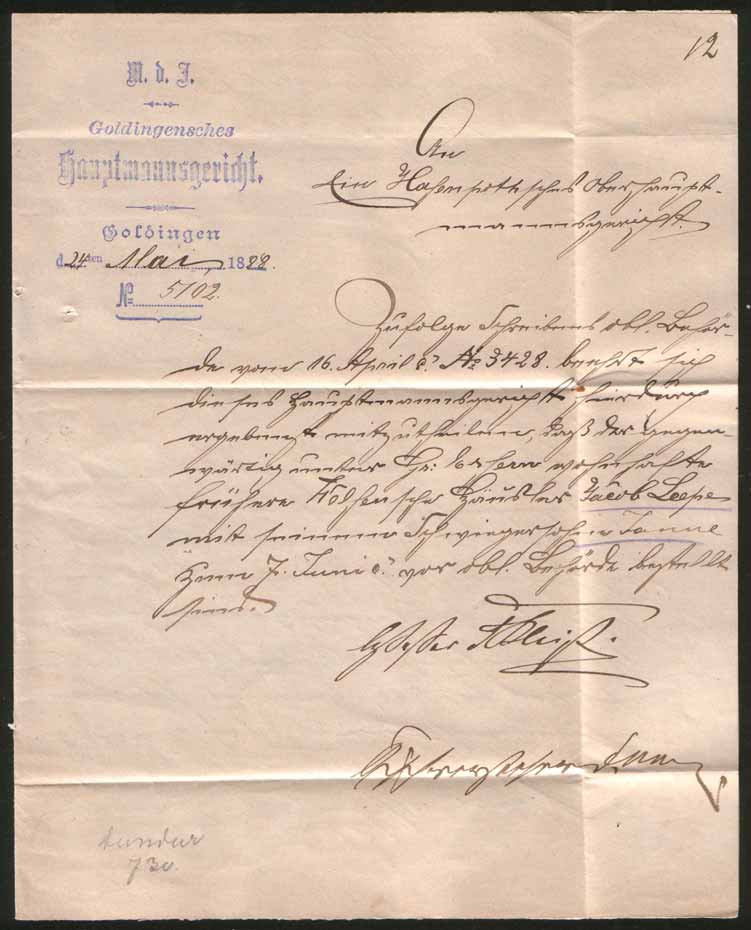 12
M. d. J.
Goldingensches
Hauptmannsgericht.
Goldingen
d. 24ten Mai 1888.
№ 5102.
An
Ein Hasenpothsches Oberhaupt-
mannsgericht.
Zufolge Schreibens obl. Behör-
de vom 16. April c. № 3428. beehrt sich
dieses Hauptmannsgericht hierdurch
ergebenst mitzutheilen, daß der gegen-
wärtig unter wohnhafte
frühere Häusler Jacob Leepe
mit seinem Schwiegersohn Janne
zum 7. Juni c. vor obl. Behörde bestellt
sind.
Assessor AKleist.
730.